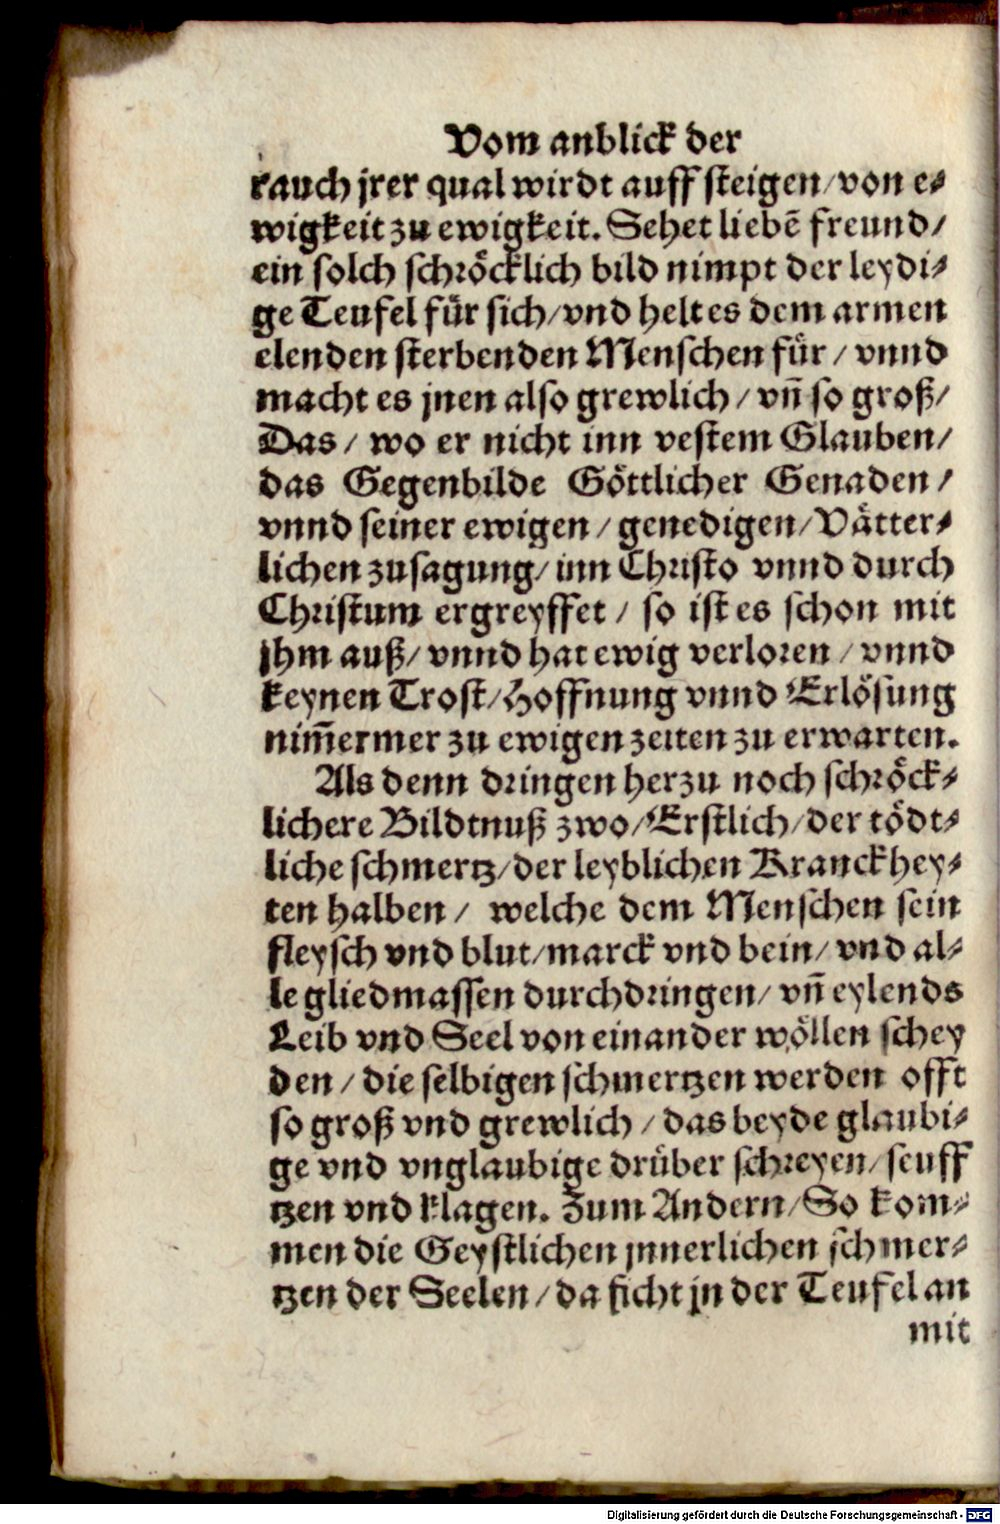 Vom anblick der
rauch jrer qual wirdt auff steigen/von e⸗
wigkeit zu ewigkeit. Sehet liebẽ freund/
ein solch schröcklich bild nimpt der leydi⸗
ge Teufel für sich/vnd helt es dem armen
elenden sterbenden Menschen für/ vnnd
macht es jnen also grewlich/ vñ so groß/
Das/ wo er nicht inn vestem Glauben/
das Gegenbilde Göttlicher Genaden/
vnnd seiner ewigen/ genedigen/Vätter⸗
lichen zusagung/ inn Christo vnnd durch
Christum ergreyffet/ so ist es schon mit
jhm auß/ vnnd hat ewig verloren/ vnnd
keynen Trost/Hoffnung vnnd Erlösung
nim̃ermer zu ewigen zeiten zu erwarten.
Als denn dringen herzu noch schröck⸗
lichere Bildtnuß zwo/Erstlich/der tödt⸗
liche schmertz/der leyblichen Kranckhey⸗
ten halben/ welche dem Menschen sein
fleysch vnd blut/marck vnd bein/ vnd al⸗
le gliedmassen durchdringen/ vñ eylends
Leib vnd Seel von einander wöllen schey
den/ die selbigen schmertzen werden offt
so groß vnd grewlich/ das beyde glaubi⸗
ge vnd vnglaubige drüber schreyen/seuff
tzen vnd klagen. Zum Andern/So kom⸗
men die Geystlichen jnnerlichen schmer⸗
tzen der Seelen/da ficht jn der Teufel an
mit
Digitalisierung gefördert durch die Deutsche Forschungsgemeinschaft - DFG